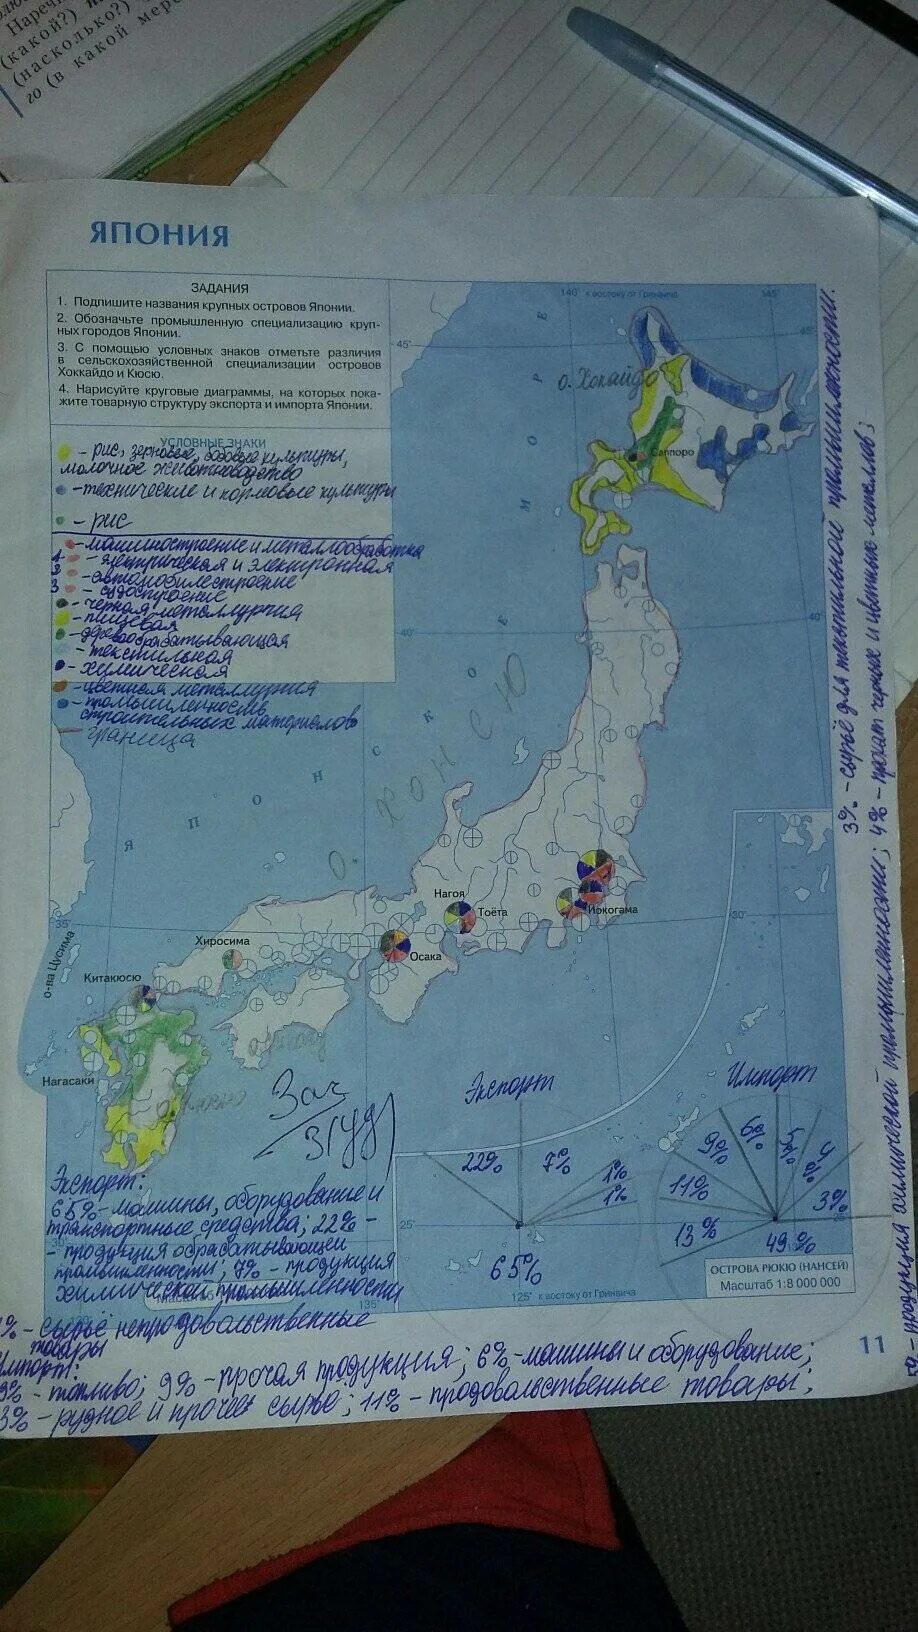 Нареч
(какой?)
(насколько?)
го (в какой мере
ЯПОНИЯ
ЗАДАНИЯ
1. Подпишите названия крупных островов Японии.
2. Обозначьте промышленную специализацию круп-
ных городов Японии.
3. С помощью условных знаков отметьте различия
в сельскохозяйственной специализации островов
Хоккайдо и Кюсю.
4. Нарисуйте круговые диаграммы, на которых пока-
жите товарную структуру экспорта и импорта Японии.
УСЛОВНЫЕ ЗНАКИ
- рис, зерновые, бобовые культуры,
молочное животноводство
- технические и кормовые культуры
- рис
- машиностроение и металлообработка
1 - электрическая и электронная
2 - автомобилестроение
3 - судостроение
- черная металлургия
- пищевая
- деревообрабатывающая
- текстильная
- химическая
- цветная металлургия
- промышленность
строительных материалов
граница
140° к востоку от Гринвича
145°
45°
40°
35
30°
25°
25
135°
125° к востоку от Гринвича
ЯПОНСКОЕ МОРЕ
о. Хокайдо
Саппоро
О. ХОНСЮ
Нагоя
Тоёта
Иокогама
Осака
Хиросима
Китакюсю
о-ва Цусима
Нагасаки
Зач
Экспорт
22% 7% 1% 1%
65%
Импорт
13% 11% 9% 6% 5 4% 3%
49%
ОСТРОВА РЮКЮ (НАНСЕЙ)
Масштаб 1:8 000 000
Экспорт:
65% - машины, оборудование и
транспортные средства; 22% -
- продукция обрабатывающей
промышленности; 7% - продукция
химической промышленности
% - сырьё непродовольственные
товары
мпорт:
9% - топливо; 9% - прочая продукция; 6% - машины и оборудование;
3% - рудное и прочее сырье; 11% - продовольственные товары;
продукция химической промышленности; 4% - прокат черных и цветных металлов;
3% - сырьё для текстильной промышленности.
11